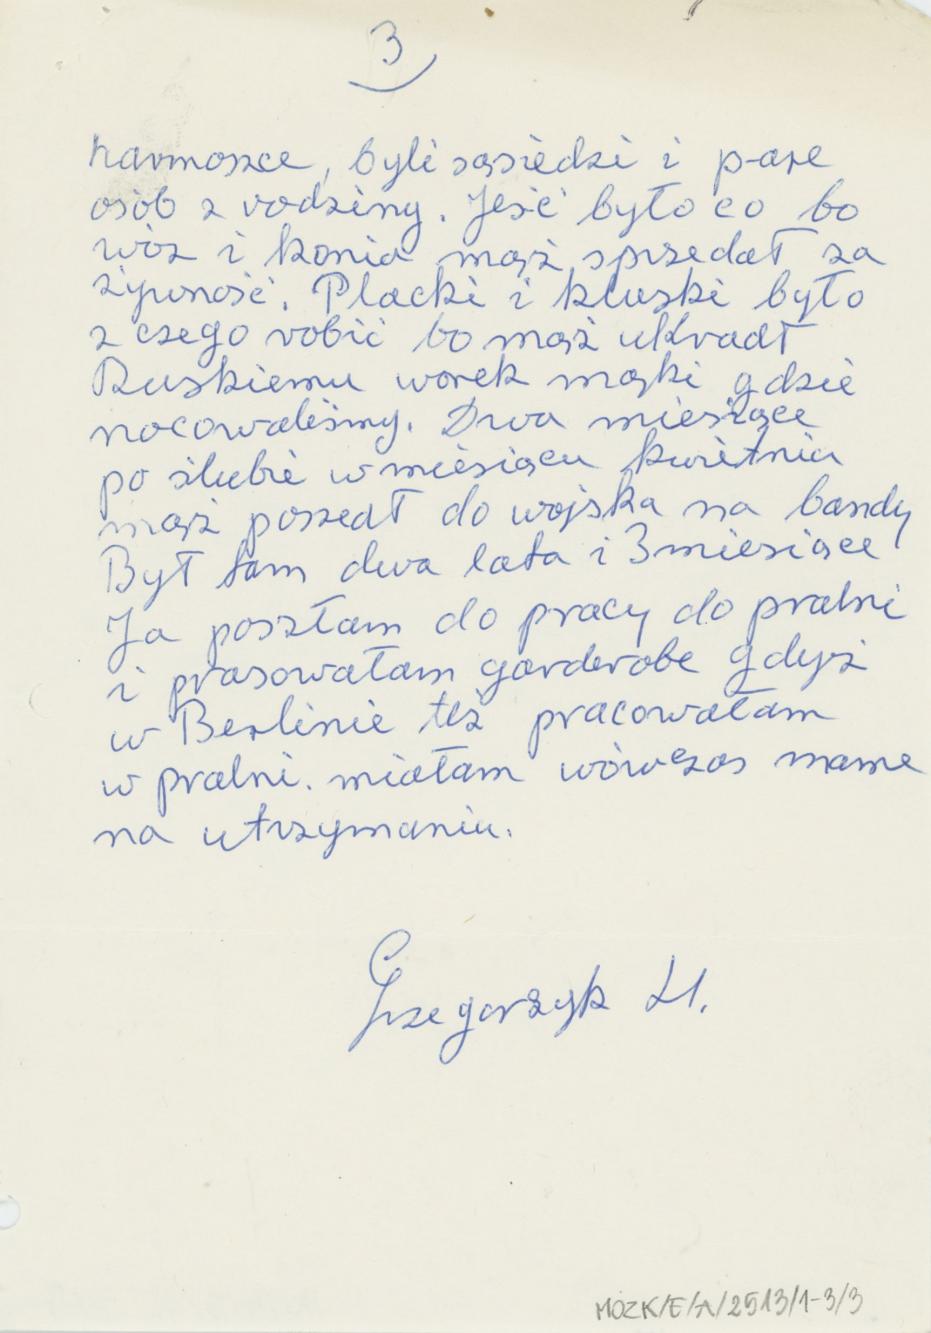 3
harmoszce, byli sąsiedzi i pare
osób z rodziny. Jeść było co bo
wóz i konia mąż sprzedał za
żywność. Placki i kluski było
z czego robić bo mąż ukradł
Ruskiemu worek mąki gdzie
nocowaliśmy. Dwa miesiące
po ślubie w miesiącu kwietniu
mąż poszedł do wojska na bandy
Był tam dwa lata i 3 miesiące
Ja poszłam do pracy do pralni
i prasowałam garderobe gdyż
w Berlinie też pracowałam
w pralni. miałam wówczas mame
na utrzymaniu.
Grzegorzyk H.
MOZK/E/A/2513/1-3/3